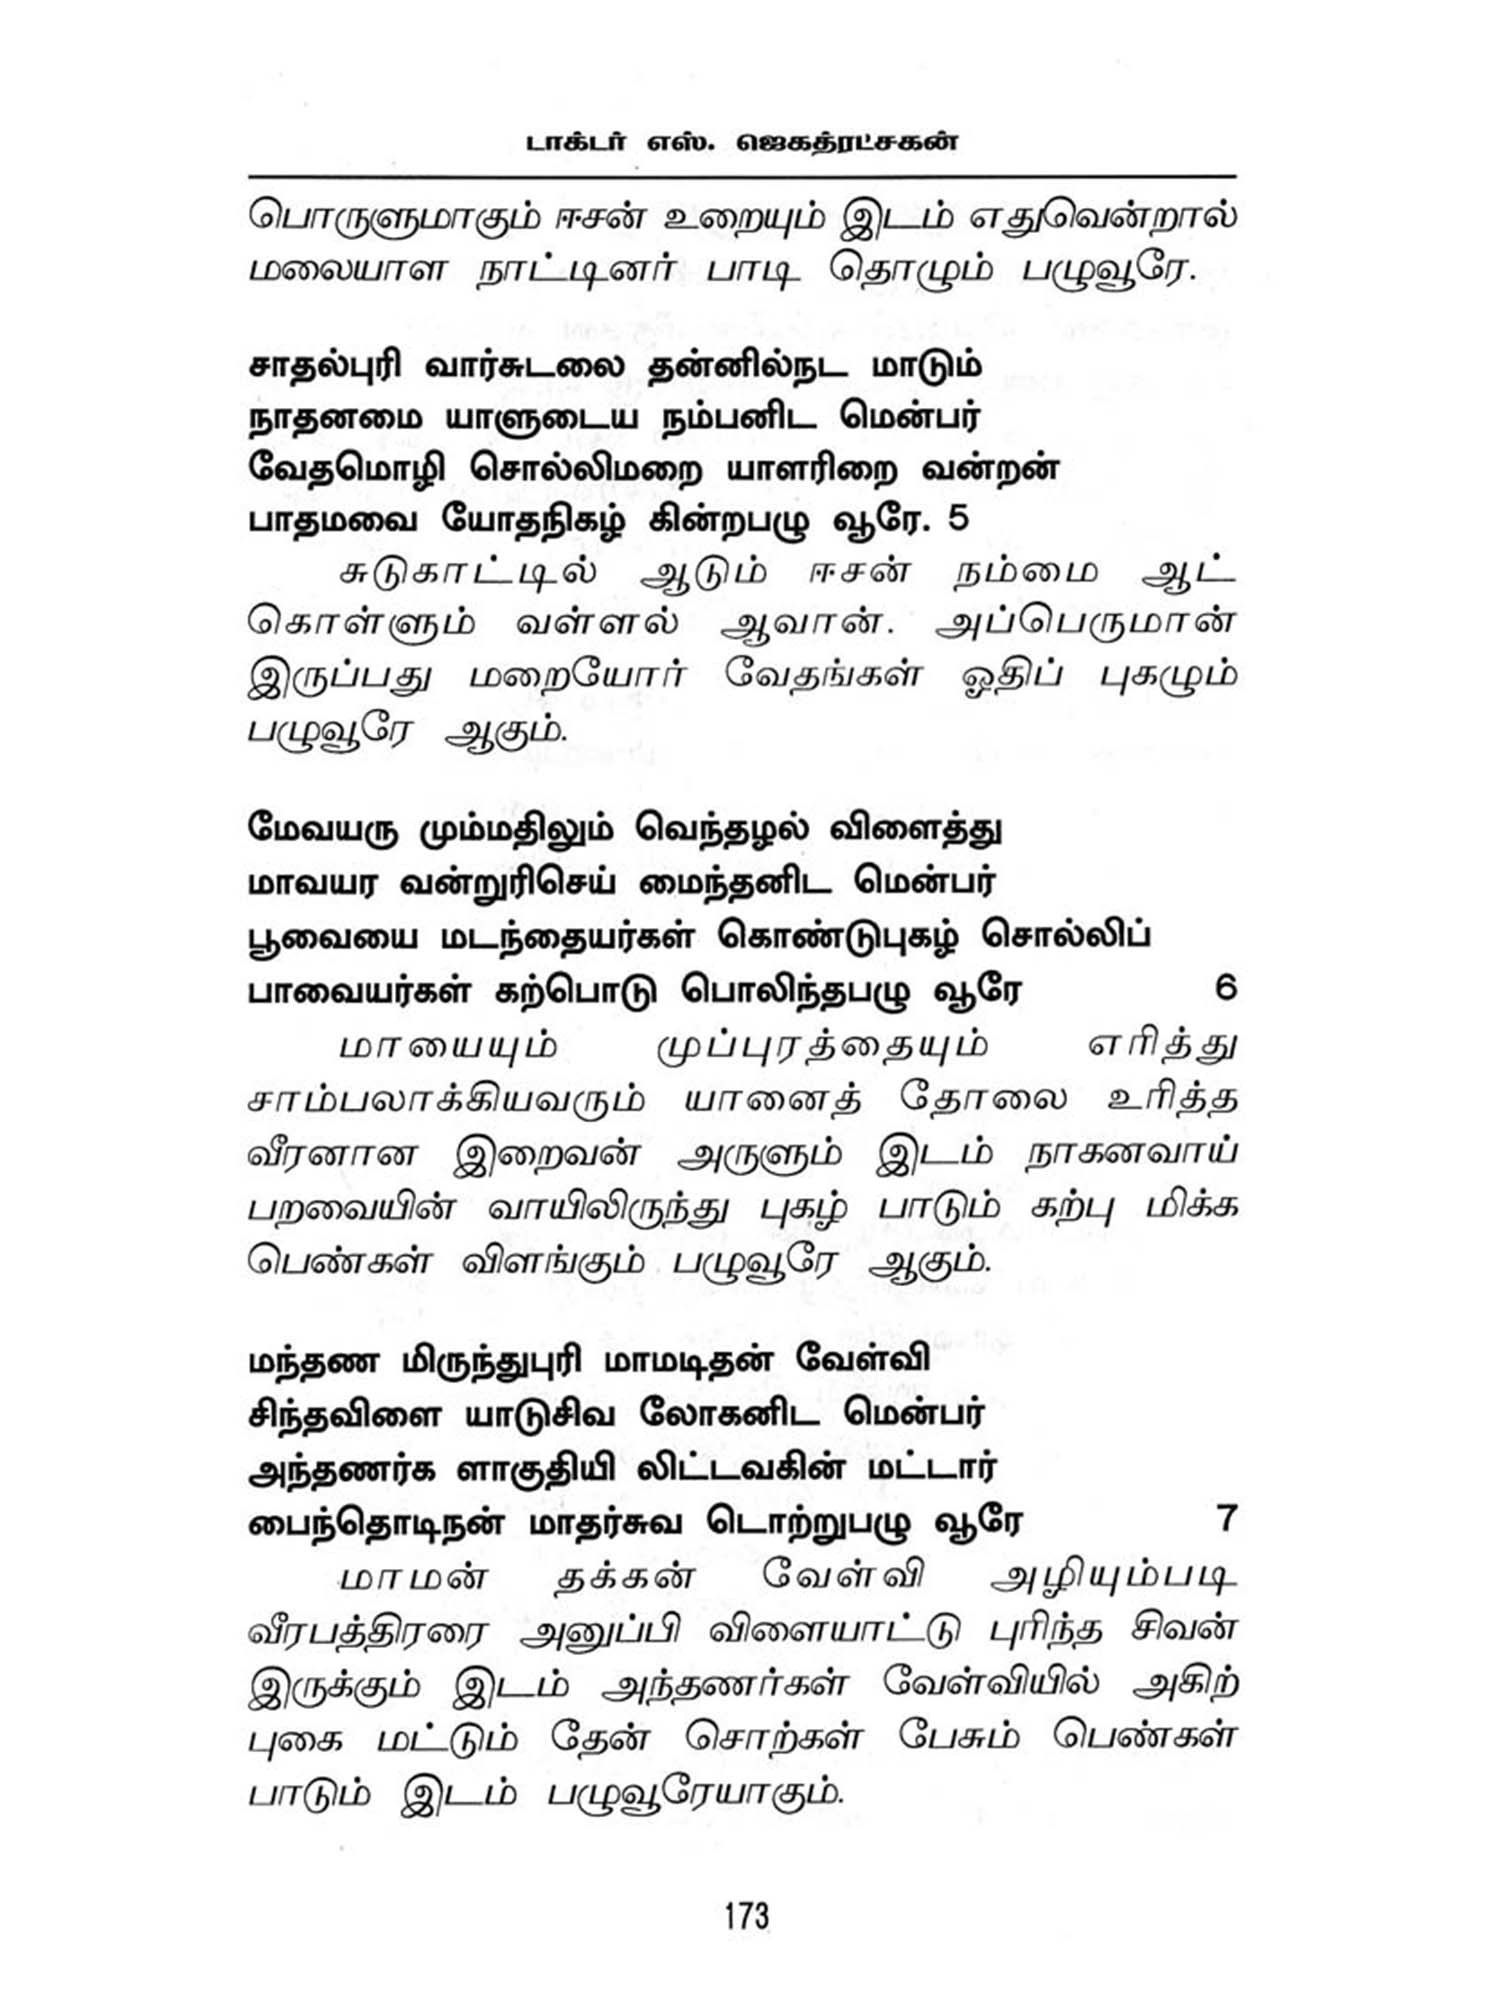 டாக்டர் எஸ். ஜெகத்ரட்சகன்
பொருளுமாகும் ஈசன் உறையும் இடம் எதுவென்றால்
மலையாள நாட்டினர் பாடி தொழும் பழுவூரே.
சாதல்புரி வார்சுடலை தன்னில்நட மாடும்
நாதனமை யாளுடைய நம்பனிட மென்பர்
வேதமொழி சொல்லிமறை யாளரிறை வன்றன்
பாதமவை யோதநிகழ் கின்றபழு வூரே. 5
சுடுகாட்டில் ஆடும் ஈசன் நம்மை ஆட்
கொள்ளும் வள்ளல் ஆவான். அப்பெருமான்
இருப்பது மறையோர் வேதங்கள் ஓதிப் புகழும்
பழுவூரே ஆகும்.
மேவயரு மும்மதிலும் வெந்தழல் விளைத்து
மாவயர வன்றுரிசெய் மைந்தனிட மென்பர்
பூவையை மடந்தையர்கள் கொண்டுபுகழ் சொல்லிப்
பாவையர்கள் கற்பொடு பொலிந்தபழு வூரே 6
மாயையும் முப்புரத்தையும் எரித்து
சாம்பலாக்கியவரும் யானைத் தோலை உரித்த
வீரனான இறைவன் அருளும் இடம் நாகனவாய்
பறவையின் வாயிலிருந்து புகழ் பாடும் கற்பு மிக்க
பெண்கள் விளங்கும் பழுவூரே ஆகும்.
மந்தண மிருந்துபுரி மாமடிதன் வேள்வி
சிந்தவிளை யாடுசிவ லோகனிட மென்பர்
அந்தணர்க ளாகுதியி லிட்டவகின் மட்டார்
பைந்தொடிநன் மாதர்சுவ டொற்றுபழு வூரே 7
மாமன் தக்கன் வேள்வி அழியும்படி
வீரபத்திரரை அனுப்பி விளையாட்டு புரிந்த சிவன்
இருக்கும் இடம் அந்தணர்கள் வேள்வியில் அகிற்
புகை மட்டும் தேன் சொற்கள் பேசும் பெண்கள்
பாடும் இடம் பழுவூரேயாகும்.
173